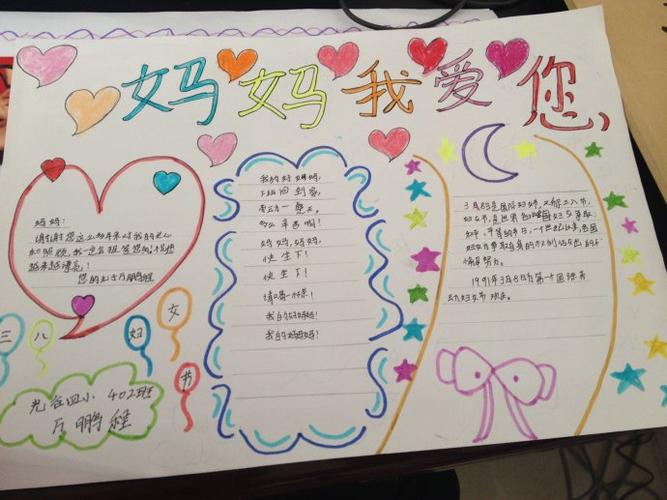 妈妈我爱您
妈妈:
谢谢您这么多年来对我的关心
和照顾,我一定会报答您的,祝您
越来越漂亮!
您的儿子万鹏程
三八妇女节
光谷四小 402班
万鹏程
我的好妈妈,
下班回到家,
劳动了一整天,
多么辛苦啊!
妈妈,妈妈,
快坐下!
快坐下!
请喝一杯茶!
我的好妈妈!
我的好妈妈!
3月8日是国际妇女节,又称三八节,
妇女节,是世界各国妇女争取
和平、平等的节日,一个世纪以来,各国
妇女为争取自身的权利做出了
努力。